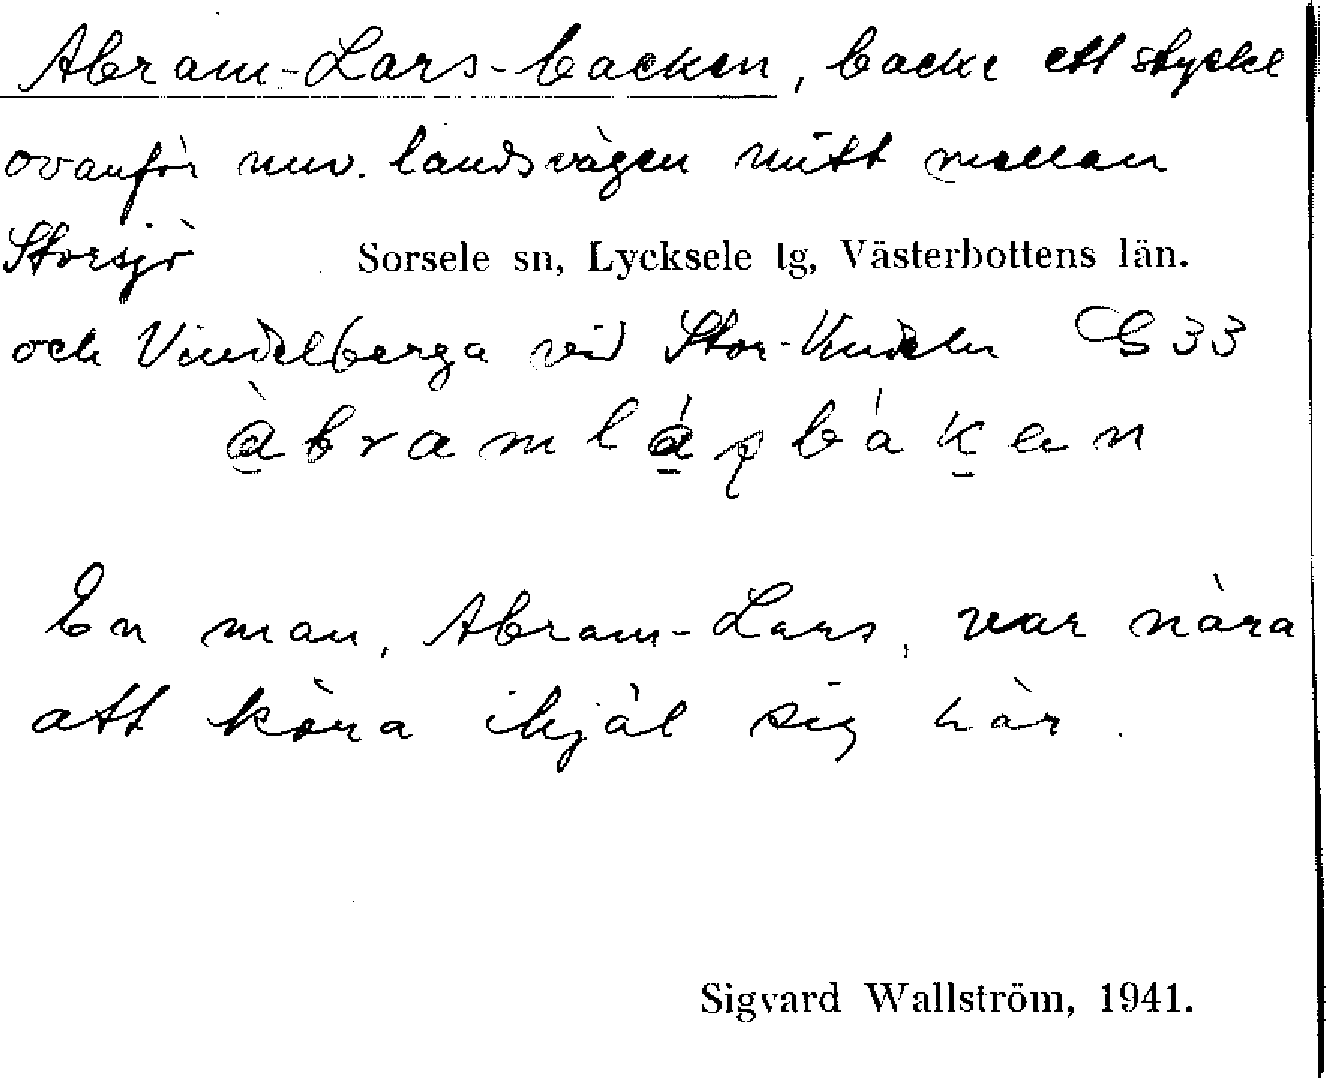 Abram-Lars-backen, backe ett stycke
ovanför nuv. landsvägen mitt mellan
Storsjö Sorsele sn, Lycksele lg, Västerbottens län.
och Vindelberga vid Stor-Vindeln G 33
àbramláʂbákan
En man, Abram-Lars, var nära
att köra ihjäl sig här.
Sigvard Wallström, 1941.